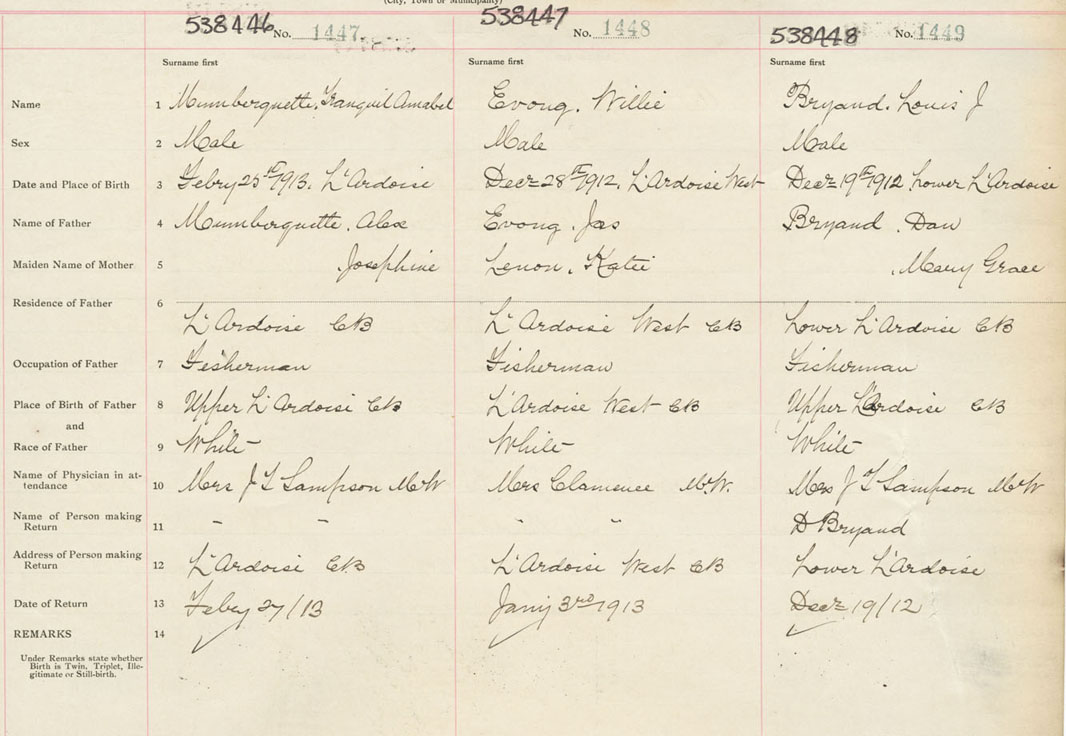 (City, Town or Municipality)
538446 No. 1447 538447 No. 1448 538448 No. 1449
Surname first Surname first Surname first
Name 1 Mumberquette, Tranquil Amabel Evong, Willie Bryand, Louis J
Sex 2 Male Male Male
Date and Place of Birth 3 Febry 25th 1913, L'Ardoise Decr 28th 1912, L'Ardoise West Decr 19th 1912, Lower L'Ardoise
Name of Father 4 Mumberquette, Alex Evong, Jas Bryand, Dan
Maiden Name of Mother 5 Josephine Lenon, Katie , Mary Grace
Residence of Father 6
L'Ardoise CB L'Ardoise West CB Lower L'Ardoise CB
Occupation of Father 7 Fisherman Fisherman Fisherman
Place of Birth of Father 8 Upper L'Ardoise CB L'Ardoise West CB Upper L'Ardoise CB
and
Race of Father 9 White White White
Name of Physician in at-
tendance 10 Mrs J T Sampson M.W Mrs Clamence M.W. Mrs J T Sampson M.W
Name of Person making
Return 11 " " " " D Bryand
Address of Person making
Return 12 L'Ardoise C.B L'Ardoise West CB Lower L'Ardoise
Date of Return 13 Febry 27/13 Jany 3rd 1913 Decr 19/12
REMARKS 14
Under Remarks state whether
Birth is Twin, Triplet, Ille-
gitimate or Still-birth.